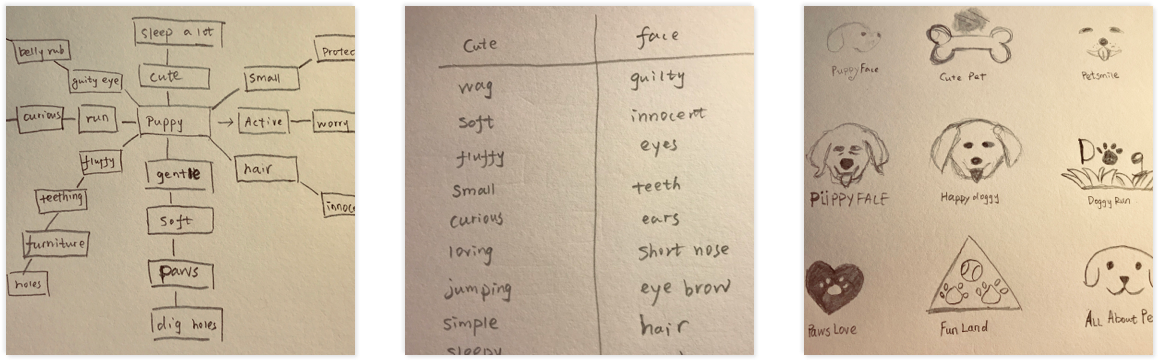 sleep a lot
belly rub
cute
Protec
guity eye
small
curious
run
Puppy
Active
worry
fluffy
gentle
hair
teething
soft
innoce
furniture
paws
holes
dig holes
Cute
face
wag
guilty
soft
innocent
fluffy
eyes
small
teeth
curious
ears
loving
short nose
jumping
eye brow
simple
hair
sleepy
Puppy Face
Cute Pet
Petsmile
PUPPY FACE
Happy doggy
D g
Doggy Run
Paws Love
Fun Land
All About Pe